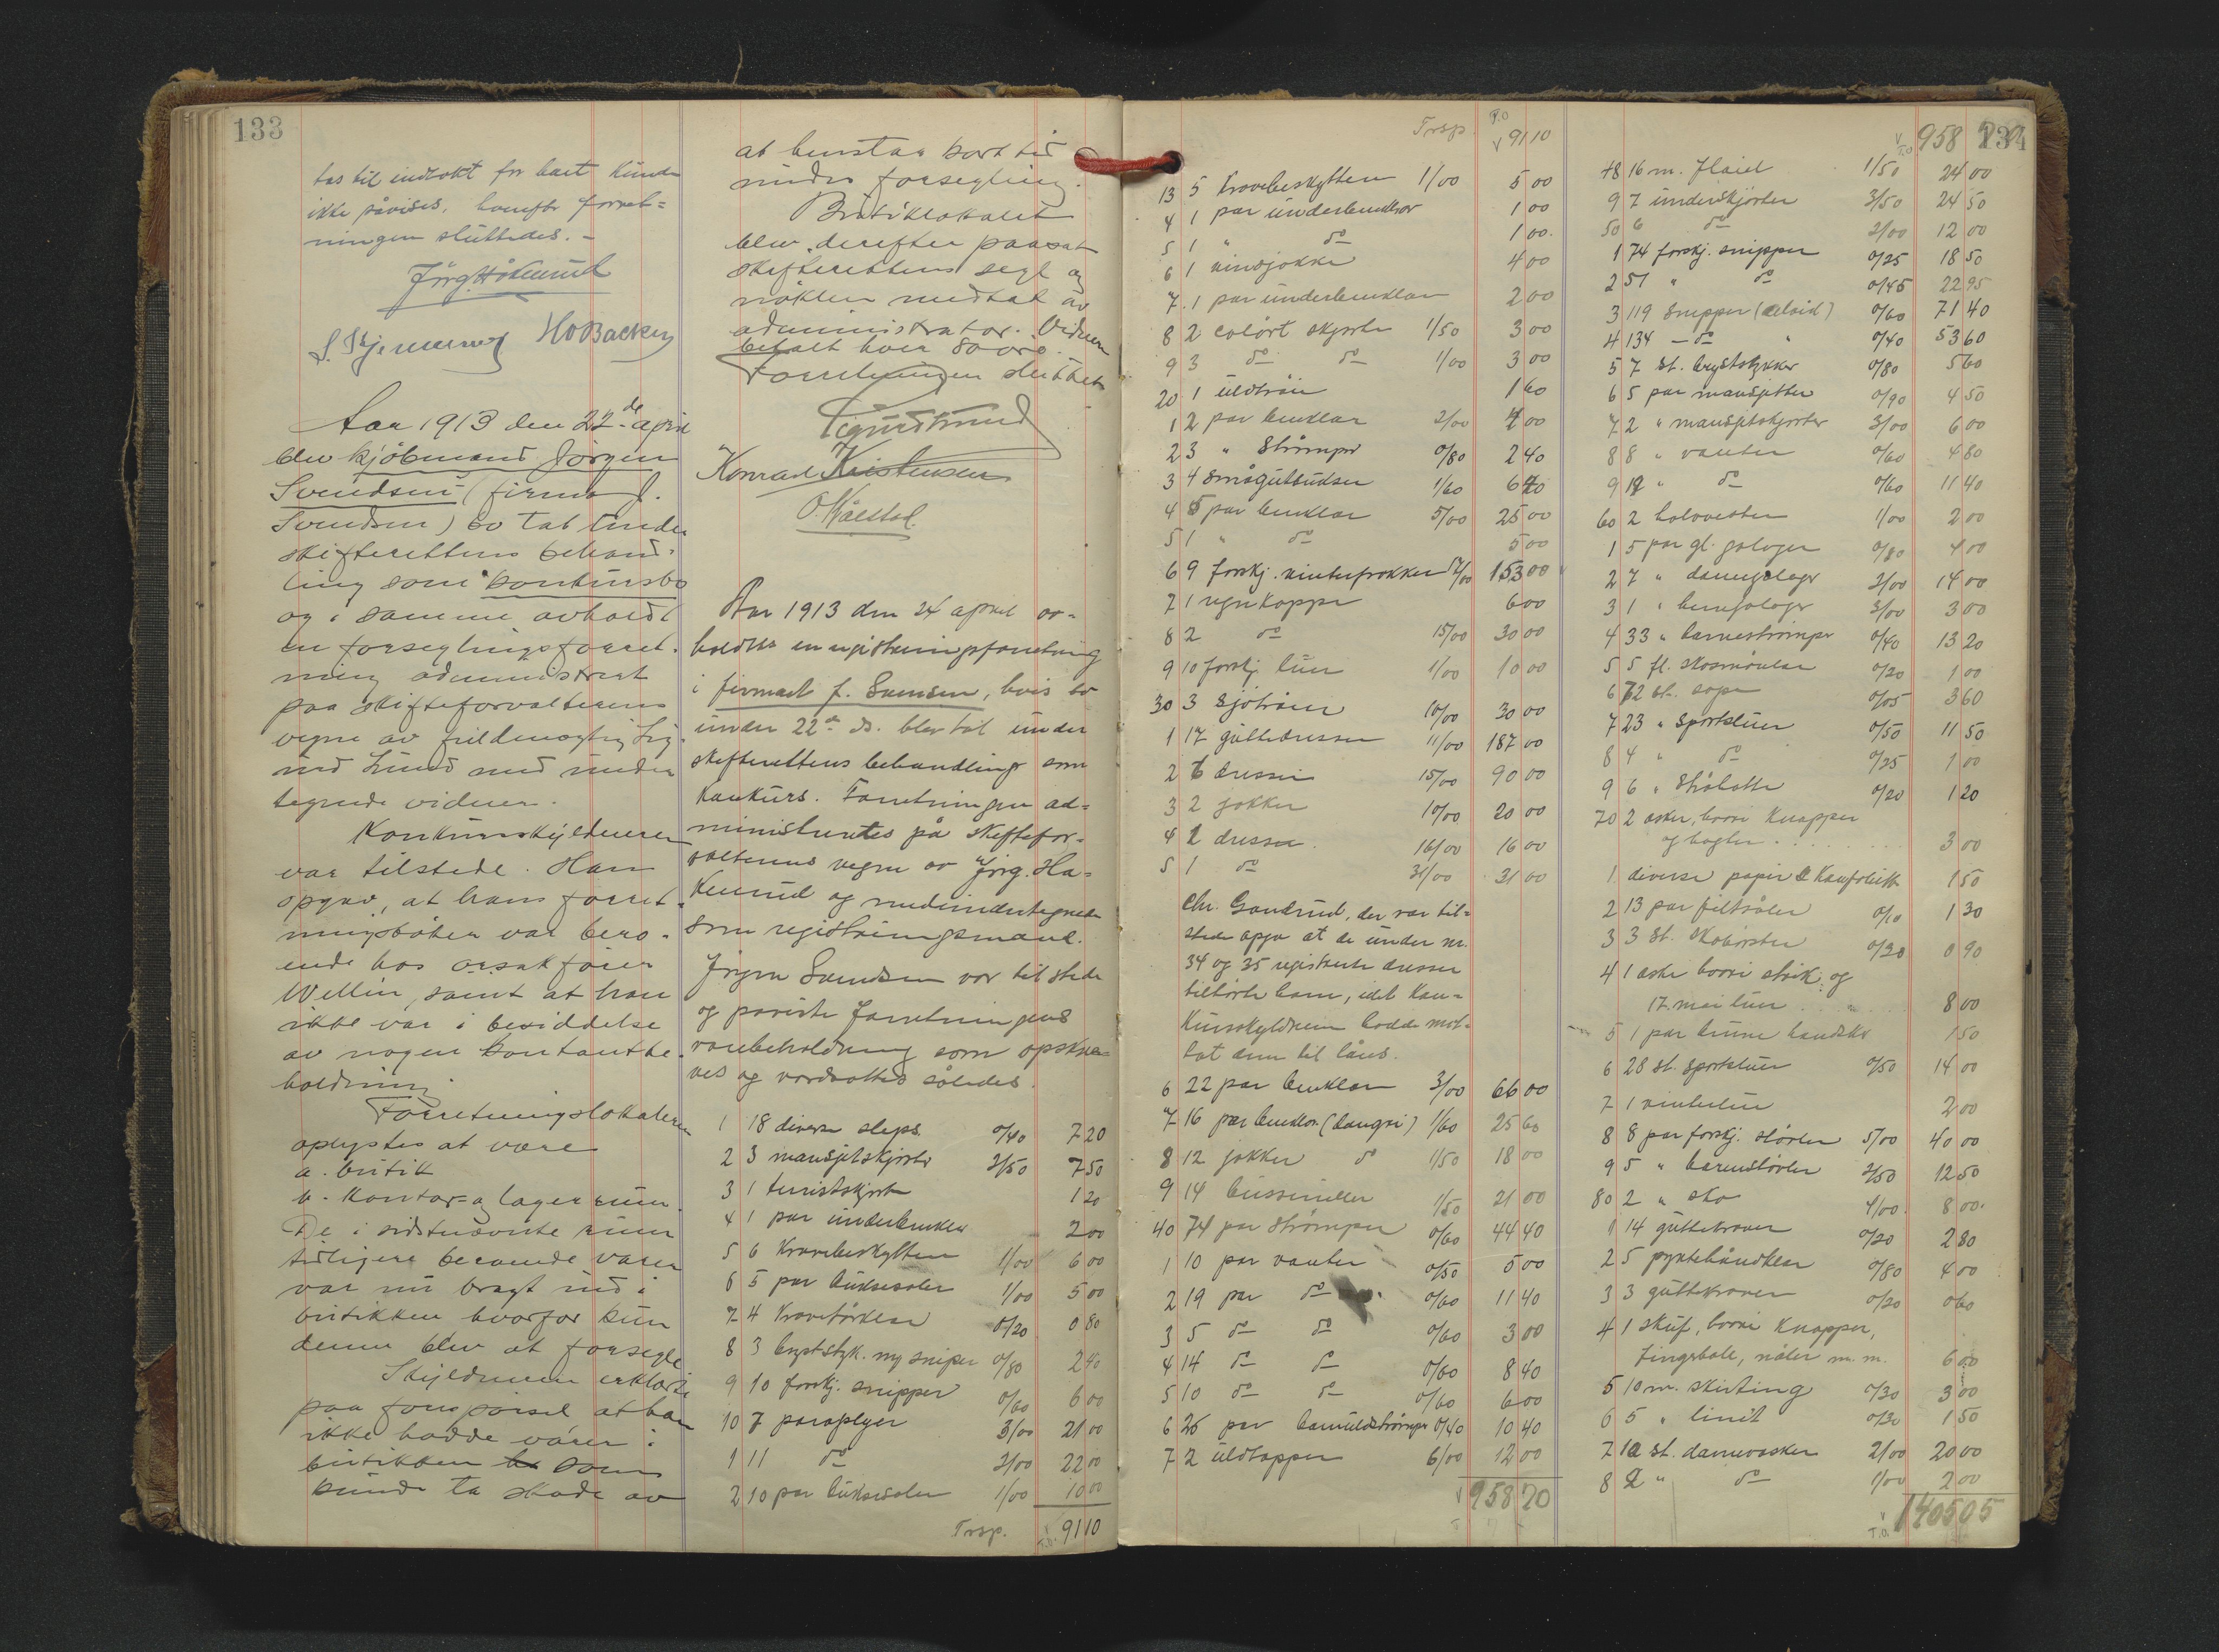 133
tas til indtækt for bart kunde
ikke påvises, hvorefter forret-
ningen sluttedes. -
Jørg. Håkenrud
HOBacken
Aar 1913 den 22de april
blev kjøbmand Jørgen
Svendsen (firma J.
Svendsen) bo tat under
skifterettens behand-
ling som konkursbo
og i samme avholdt
en forseglingsforret-
ning administreret
paa skifteforvalterens
vegne av fuldmægtig Sig-
urd Lund med under
tegnede vidner.
Konkursskyldneren
var tilstede. Han
opgav, at hans forret-
ningsbøker var bero-
ende hos orsakfører
Wellin, samt at han
ikke var i besiddelse
av nogen kontantbe-
holdning.
Forretningslokalerne
oplystes at være
a. butik
b. kontor og lagerrum.
De i sidstnævnte rum
tidligere beroende varer
var nu bragt ind i
butikken hvorfor kun
denne blev at forsegle
Skyldneren erklærte
paa forespørsel at han
ikke hadde varer i
butikken som
kunde ta skade av
at henstaa kort tid
under forsegling.
Butiklokalet
blev derefter paasat
skifterettens segl og
nøklen medtat av
administrator. Vidnene
betalt hver 80 øre.
Forretningen sluttet
Sigurd Lund
Konrad Kristensen
O. Kålstad.
Aar 1913 den 24 april av-
holdtes en registreringsforretning
i firmaet J. Svensen, hvis bo
under 22de ds. blev tat under
skifterettens behandling som
konkurs. Forretningen ad-
ministrertes på skiftefor-
valterens vegne av Jørg. Hå-
kenrud og medundertegnede
som registreringsmænd.
Jørgen Svendsen var tilstede
og påviste forretningens
varebeholdning som opskre-
ves og værdsattes således.
1 18 diverse sleps 0/40 7 20
2 3 mansjetskjorter 2/50 7 50
3 1 turistskjorte 1 20
4 1 par underbenklær 2 00
5 6 kravebeskyttere 1/00 6 00
6 5 par buksesæler 1/00 5 00
7 4 kravetørklær 0/20 0 80
8 3 brystsyk. m/ sniper 0/80 2 40
9 10 forskj. snipper 0/60 6 00
10 7 paraplyer 3/00 21 00
1 11 do 2/00 22 00
2 10 par buksesæler 1/00 10 00
Trsp. T.O. 91 10
Trsp. T.O v 91 10
13 5 kravebeskyttere 1/00 5 00
4 1 par underbenklær 1 00
5 1 " do 1 00.
6 1 vindjakke 4 00
7 1 par underbenklær 2 00
8 2 colørt skjorte 1/50 3 00
9 3 do do 1/00 3 00
20 1 uldtrøie 1 60
1 2 par benklær 2/00 4 00
2 3 " strømper 0/80 2 40
3 4 smågutbukser 1/60 6 40
4 5 par benklær 5/00 25 00
5 1 " do 5 00
6 9 forskj. vinterfrakker 17/00 153 00
7 1 regnkappe 6 00
8 2 do 15/00 30 00
9 10 forskj. luer 1/00 10 00
30 3 sjøtrøier 10/00 30 00
1 17 guttedresser 11/00 187 00
2 6 dresser 15/00 90 00
3 2 jakker 10/00 20 00
4 1 dresser. 16/00 16 00
5 1 do 31/00 31 00
Chr. Gandrud, der var til-
stede opgav at de under nr.
34 og 35 registrerte dresser
tilhørte ham, idet kon-
kursskyldneren hadde mot-
tat dem til låns.
6 22 par benklær 3/00 66 00
7 16 par benklær (dongri) 1/60 25 60
8 12 jakker do 1/50 18 00
9 14 busseruller 1/50 21 00
40 74 par strømper 0/60 44 40
1 10 par vanter 0/50 5 00
2 19 par do 0/60 11 40
3 5 do do 0/60 3 00
4 14 do do 0/60 8 40
5 10 do do 0/60 6 00
6 26 par bomuldstrømper 0/40 10 40
7 2 uldtæpper 6/00 12 00
v 958 70
134
v T.O 958 70
48 16 m. flaiel 1/50 24 00
9 7 underskjørter 3/50 24 50
50 6 do 2/00 12 00
1 74 forskj. snipper 0/25 18 50
2 51 " do 0/45 22 95
3 119 snipper (celoid) 0/60 71 40
4 134 - do " 0/40 53 60
5 7 st. brystsykker 0/80 5 60
6 5 par mansjetter 0/90 4 50
7 2 " mansjetskjorter 3/00 6 00
8 8 " vanter 0/60 4 80
9 19 " do 0/60 11 40
60 2 halvvester 1/00 2 00
1 5 par gl. galoger 0/80 4 00
2 7 " damegaloger 2/00 14 00
3 1 " herregaloger 3/00 3 00
4 33 " barnestrømper 0/40 13 20
5 5 fl. skosmørelse 0/20 1 00
6 72 st. sape 0/05 3 60
7 23 " sportsluer 0/50 11 50
8 4 " do 0/25 1 00
9 6 " stråhatte 0/20 1 20
70 2 æsker, hvori knapper
og hagter . . . . . . . 3 00
1 diverse papir & konfolutt 1 50
2 13 par filtsåler 0/10 1 30
3 3 st. skobørster 0/30 0 90
4 1 æske hvori strik, og
17. mai luer 8 00
5 1 par brune handsker 1 50
6 28 st. sportsluer 0/50 14 00
7 1 vinterlue 2 00
8 8 par forskj. støvler 5/00 40 00
9 5 " barnestøvler 2/50 12 50
80 2 " sko 4/00 8 00.
1 14 guttekraver 0/20 2 80
2 5 pyntehåndklær 0/80 4 00
3 3 guttekraver 0/20 0 60
4 1 skuf, hvori knapper,
fingerbøle, nåler m. m. 6 00
5 10 m. skirting 0/30 3 00
6 5 " linit 0/30 1 50
7 10 st. damevæsker 2/00 20 00
8 2 " do 1/00 2 00
v T.O. 1405 05